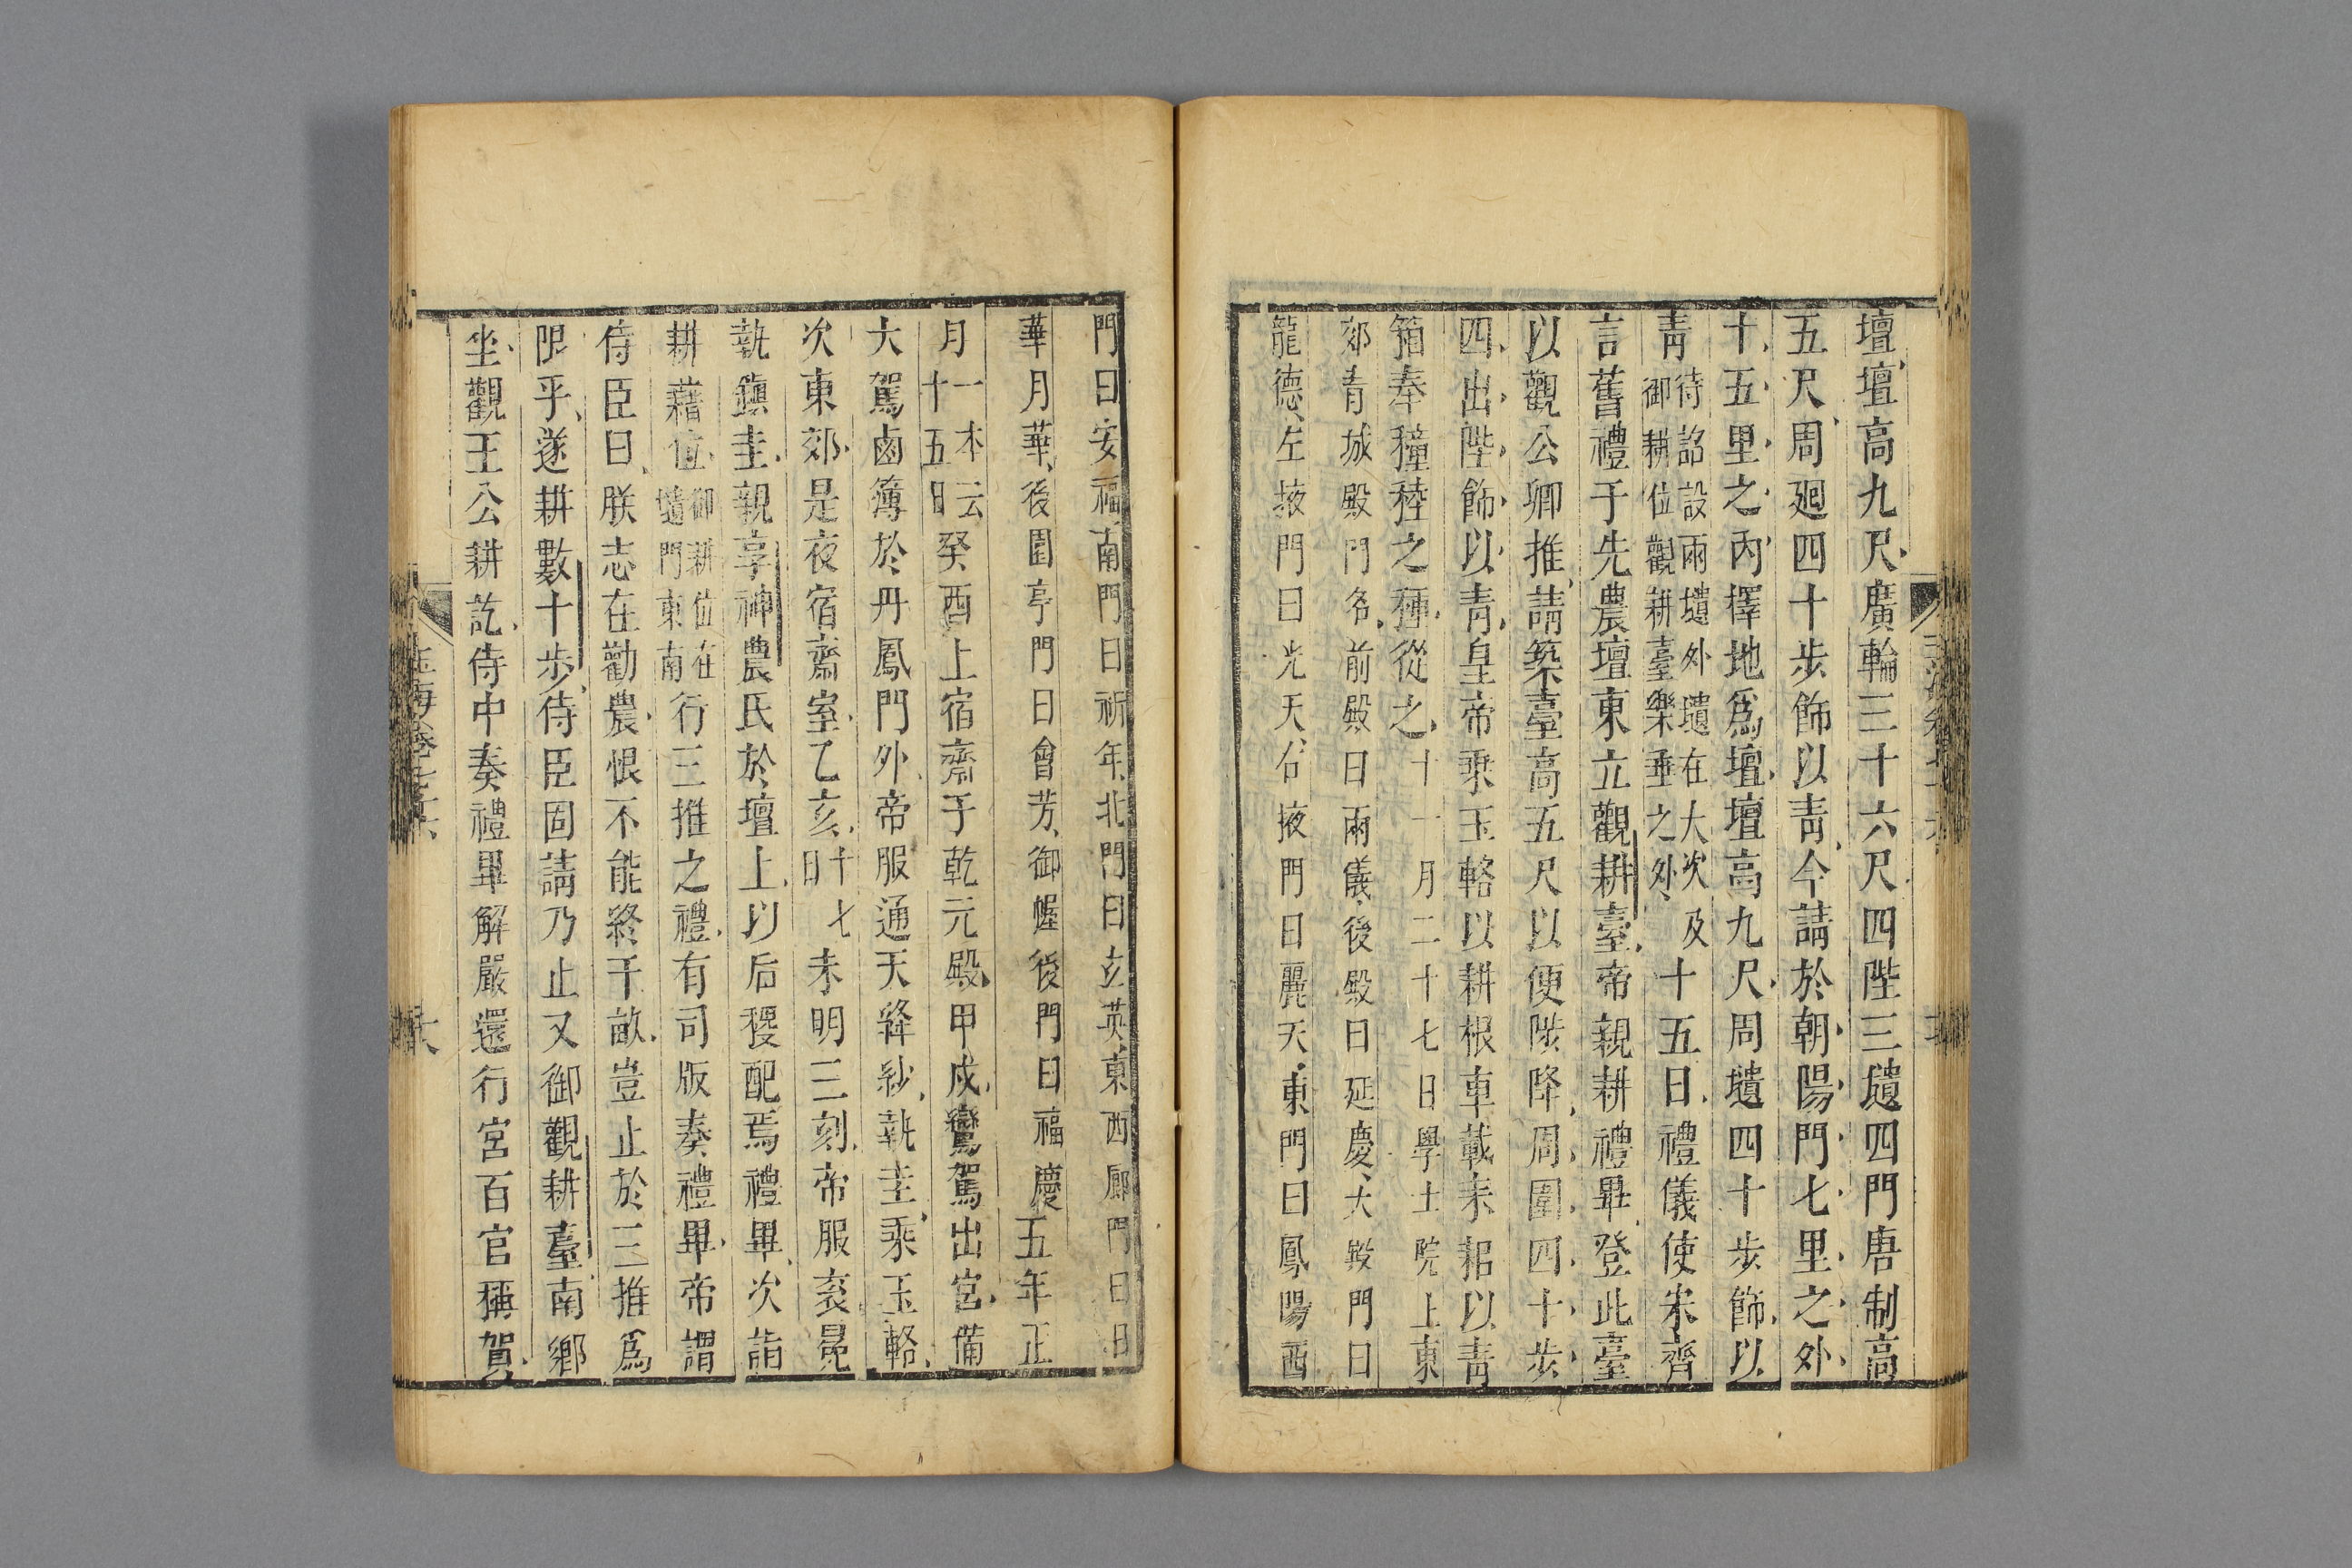 壇壇高九尺廣輪三十六尺四陛三壝四門唐制高
五尺周廻四十步飾以靑今請於朝陽門七里之外
十五里之內擇地爲壇壇高九尺周壝四十步飾以
靑待詔設兩壝外壝在大次及御耕位觀耕臺樂垂之外十五日禮儀使宋齊
言舊禮于先農壇東立觀耕臺帝親耕禮畢登此臺
以觀公卿推請築臺高五尺以便陟降周圍四十步
四出陛飾以靑皇帝乘玉輅以耕根車載耒耜以靑
箱奉穜稑之種從之十一月二十七日學士院上東
郊靑城殿門名前殿曰兩儀後殿曰延慶大殿門曰
龍德左掖門曰光天右掖門曰麗天東門曰鳳陽西
門曰安福南門曰祈年北門曰玄英東西廊門曰日
華月華後園亭門曰會芳御幄後門曰福慶五年正
月一本云十五日癸酉上宿齋于乾元殿甲戌鸞駕出宮備
大駕鹵簿於丹鳳門外帝服通天絳紗執圭乘玉輅
次東郊是夜宿齋室乙亥十七日未明三刻帝服衮冕
執鎭圭親享神農氏於壇上以后稷配焉禮畢次詣
耕藉位御耕位在壝門東南行三推之禮有司版奏禮畢帝謂
侍臣曰朕志在勸農恨不能終千畝豈止於三推爲
限乎遂耕數十步侍臣固請乃止又御觀耕臺南鄉
坐觀王公耕訖侍中奏禮畢解嚴還行宮百官稱賀